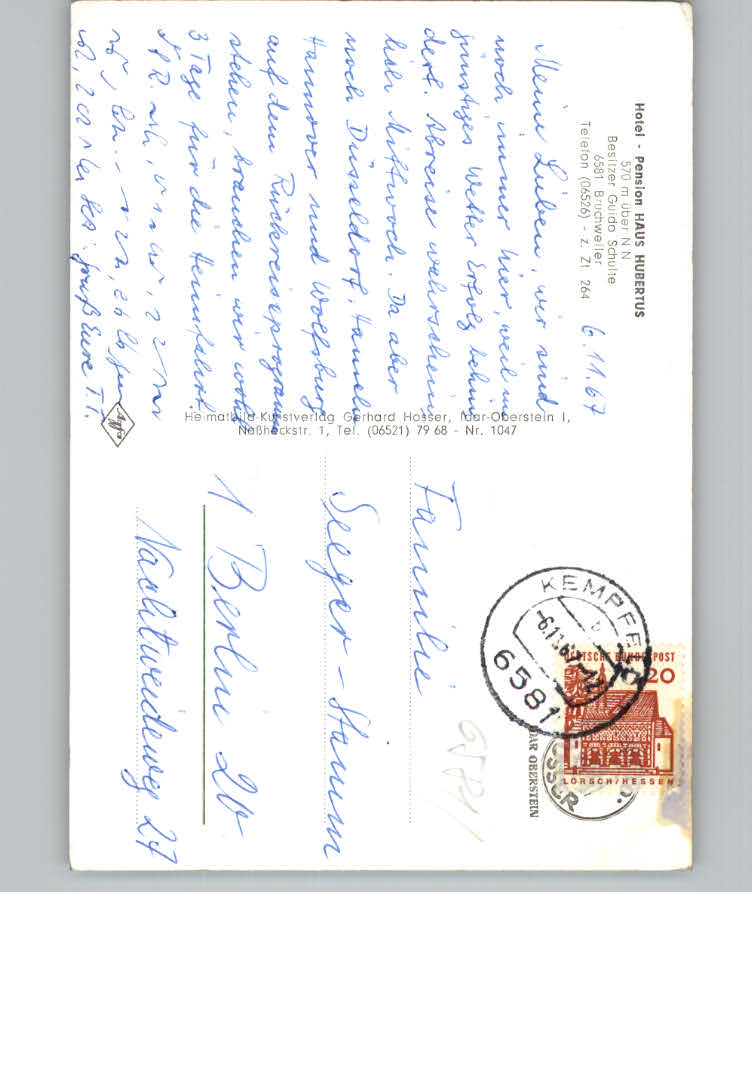 Hotel - Pension HAUS HUBERTUS
570 m über N N
Besitzer Guido Schulte
6581 Bruchweiler
Telefon (06526) - z. Zt 264
6.11.67
Meine Lieben, wir sind
noch immer hier, weil un
günstiges Wetter Erfolg behin
dert. Abreise wahrschein
lich Mittwoch. Da aber
noch Düsseldorf, Hameln
Hannover und Wolfsburg
auf dem Rückreiseprogramm
stehen, brauchen wir wohl
3 Tage für die Heimfahrt.
Gruß Eure
Agfa
Heimatbild-Kunstverlag Gerhard Hosser, Idar-Oberstein I,
Naßheckstr. 1, Tel. (06521) 79 68 - Nr. 1047
KEMPFELD
-6.11.67-12
6581
DEUTSCHE BUNDESPOST
20
LORSCH/HESSEN
IDAR OBERSTEIN
HOSSER
6581
Familie
Seeger-Stamm
1 Berlin 20
Nachtweideweg 27